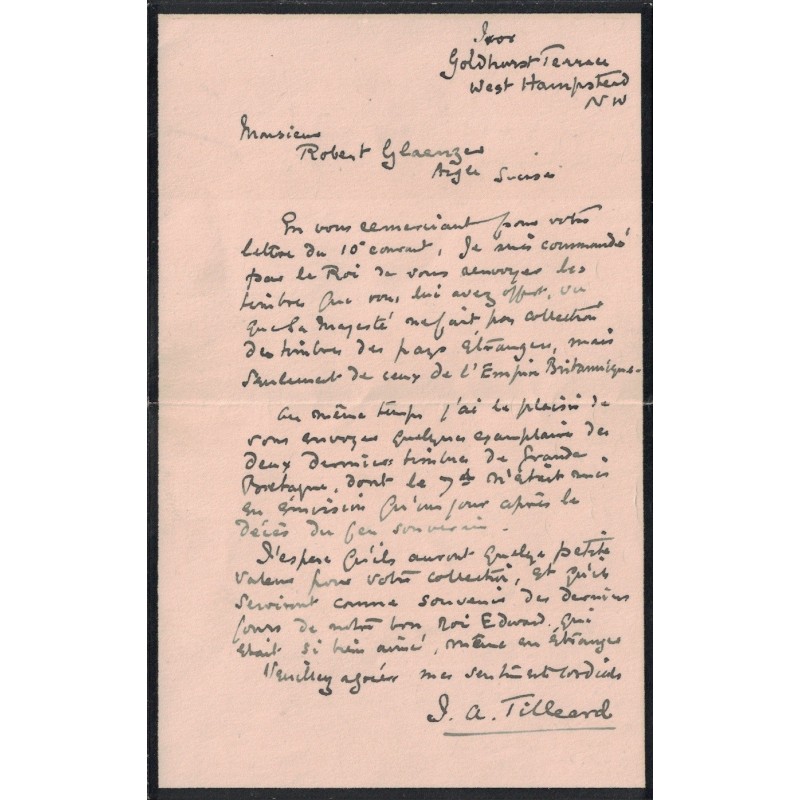 Goldhurst Terrace
West Hampstead
NW
Monsieur
Robert Glaenzer
Aigle Suisse
En vous remerciant pour votre
lettre du 10e courant, Je suis commandé
par le Roi de vous renvoyer les
timbres que vous lui avez offert, vu
que Sa Majesté ne fait pas collection
des timbres des pays étrangers, mais
seulement de ceux de l'Empire Britannique.
Au même temps j'ai le plaisir de
vous envoyer quelques exemplaires des
deux derniers timbres de Grande
Bretagne, dont le 7d n'était mis
en émission qu'un jour après le
décès du feu souverain.
J'espère qu'ils auront quelque petite
valeur pour votre collection, et qu'ils
serviront comme souvenir des derniers
jours de notre bon Roi Edward, qui
était si bien aimé, même en étranger
Veuillez agréer mes sentiments cordials
J. A. Tilleard